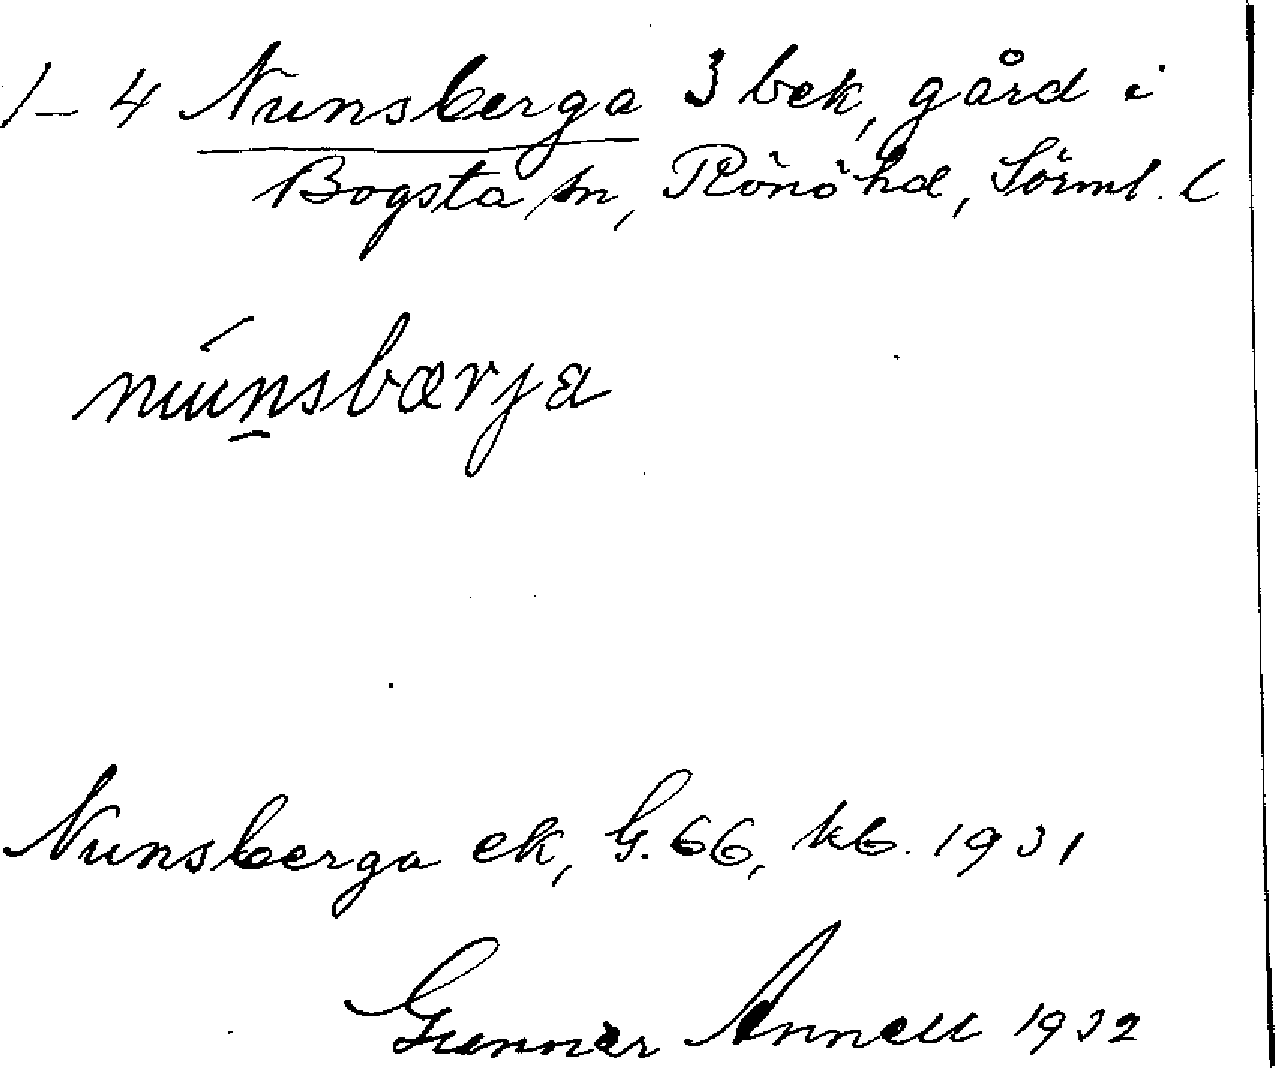 1-4 Nunsberga 3 bek, gård i
Bogsta sn, Rönö hd, Sörml. l
nùnsbærja
Nunsberga ek, G. 66, kb. 1931
Gunnar Annell 1932